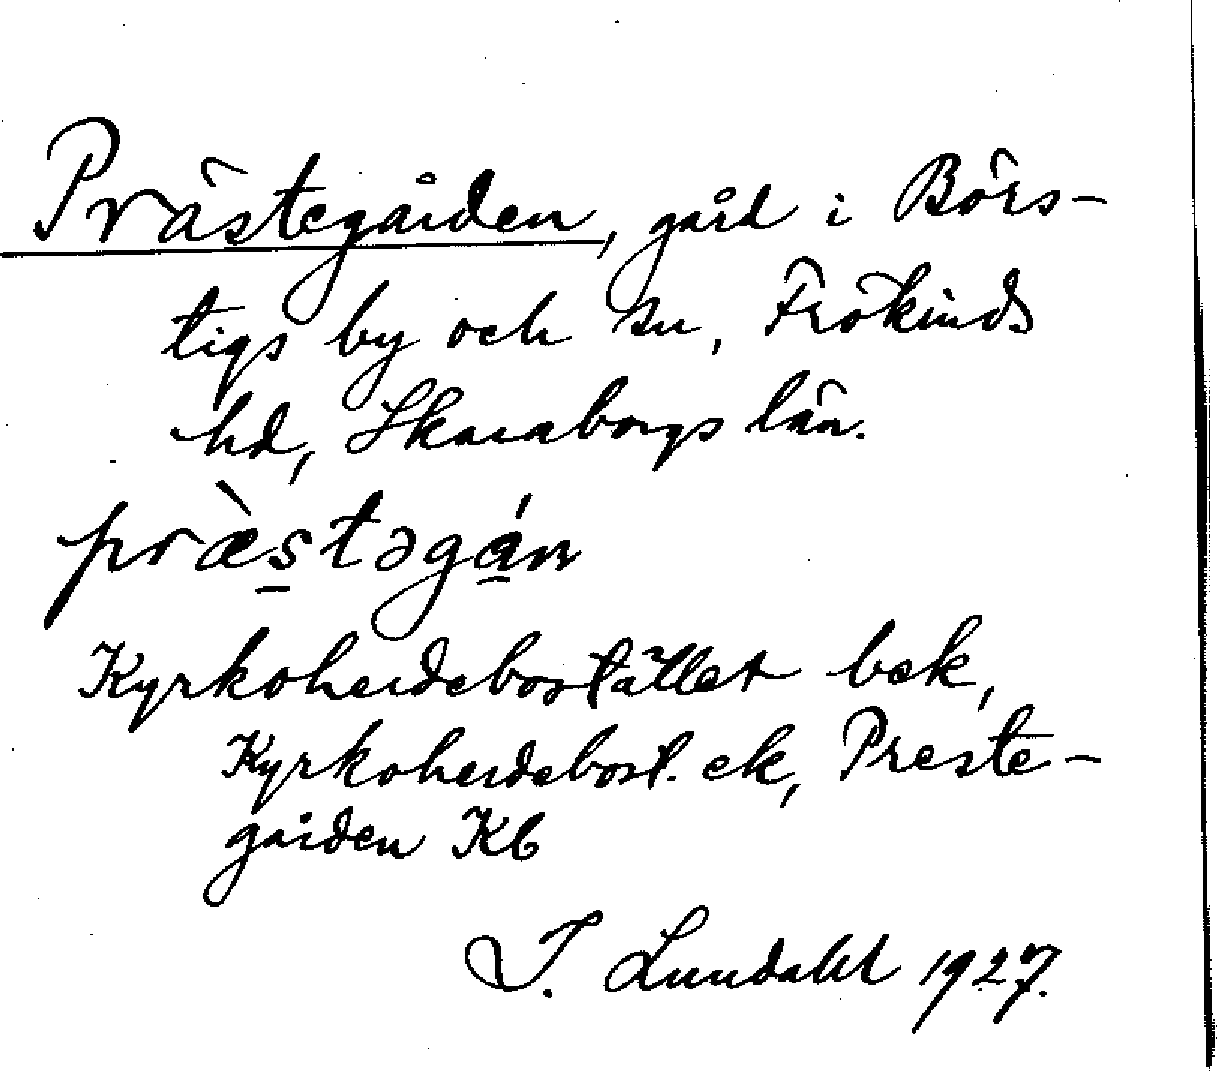 Prästegården, gård i Börs-
tigs by och sn, Frökinds
hd, Skaraborgs län.
præ̀s̱təgá̱n
Kyrkoherdebostället bek,
Kyrkoherdebost. ek, Preste-
gården Kb
I. Lundahl 1927.